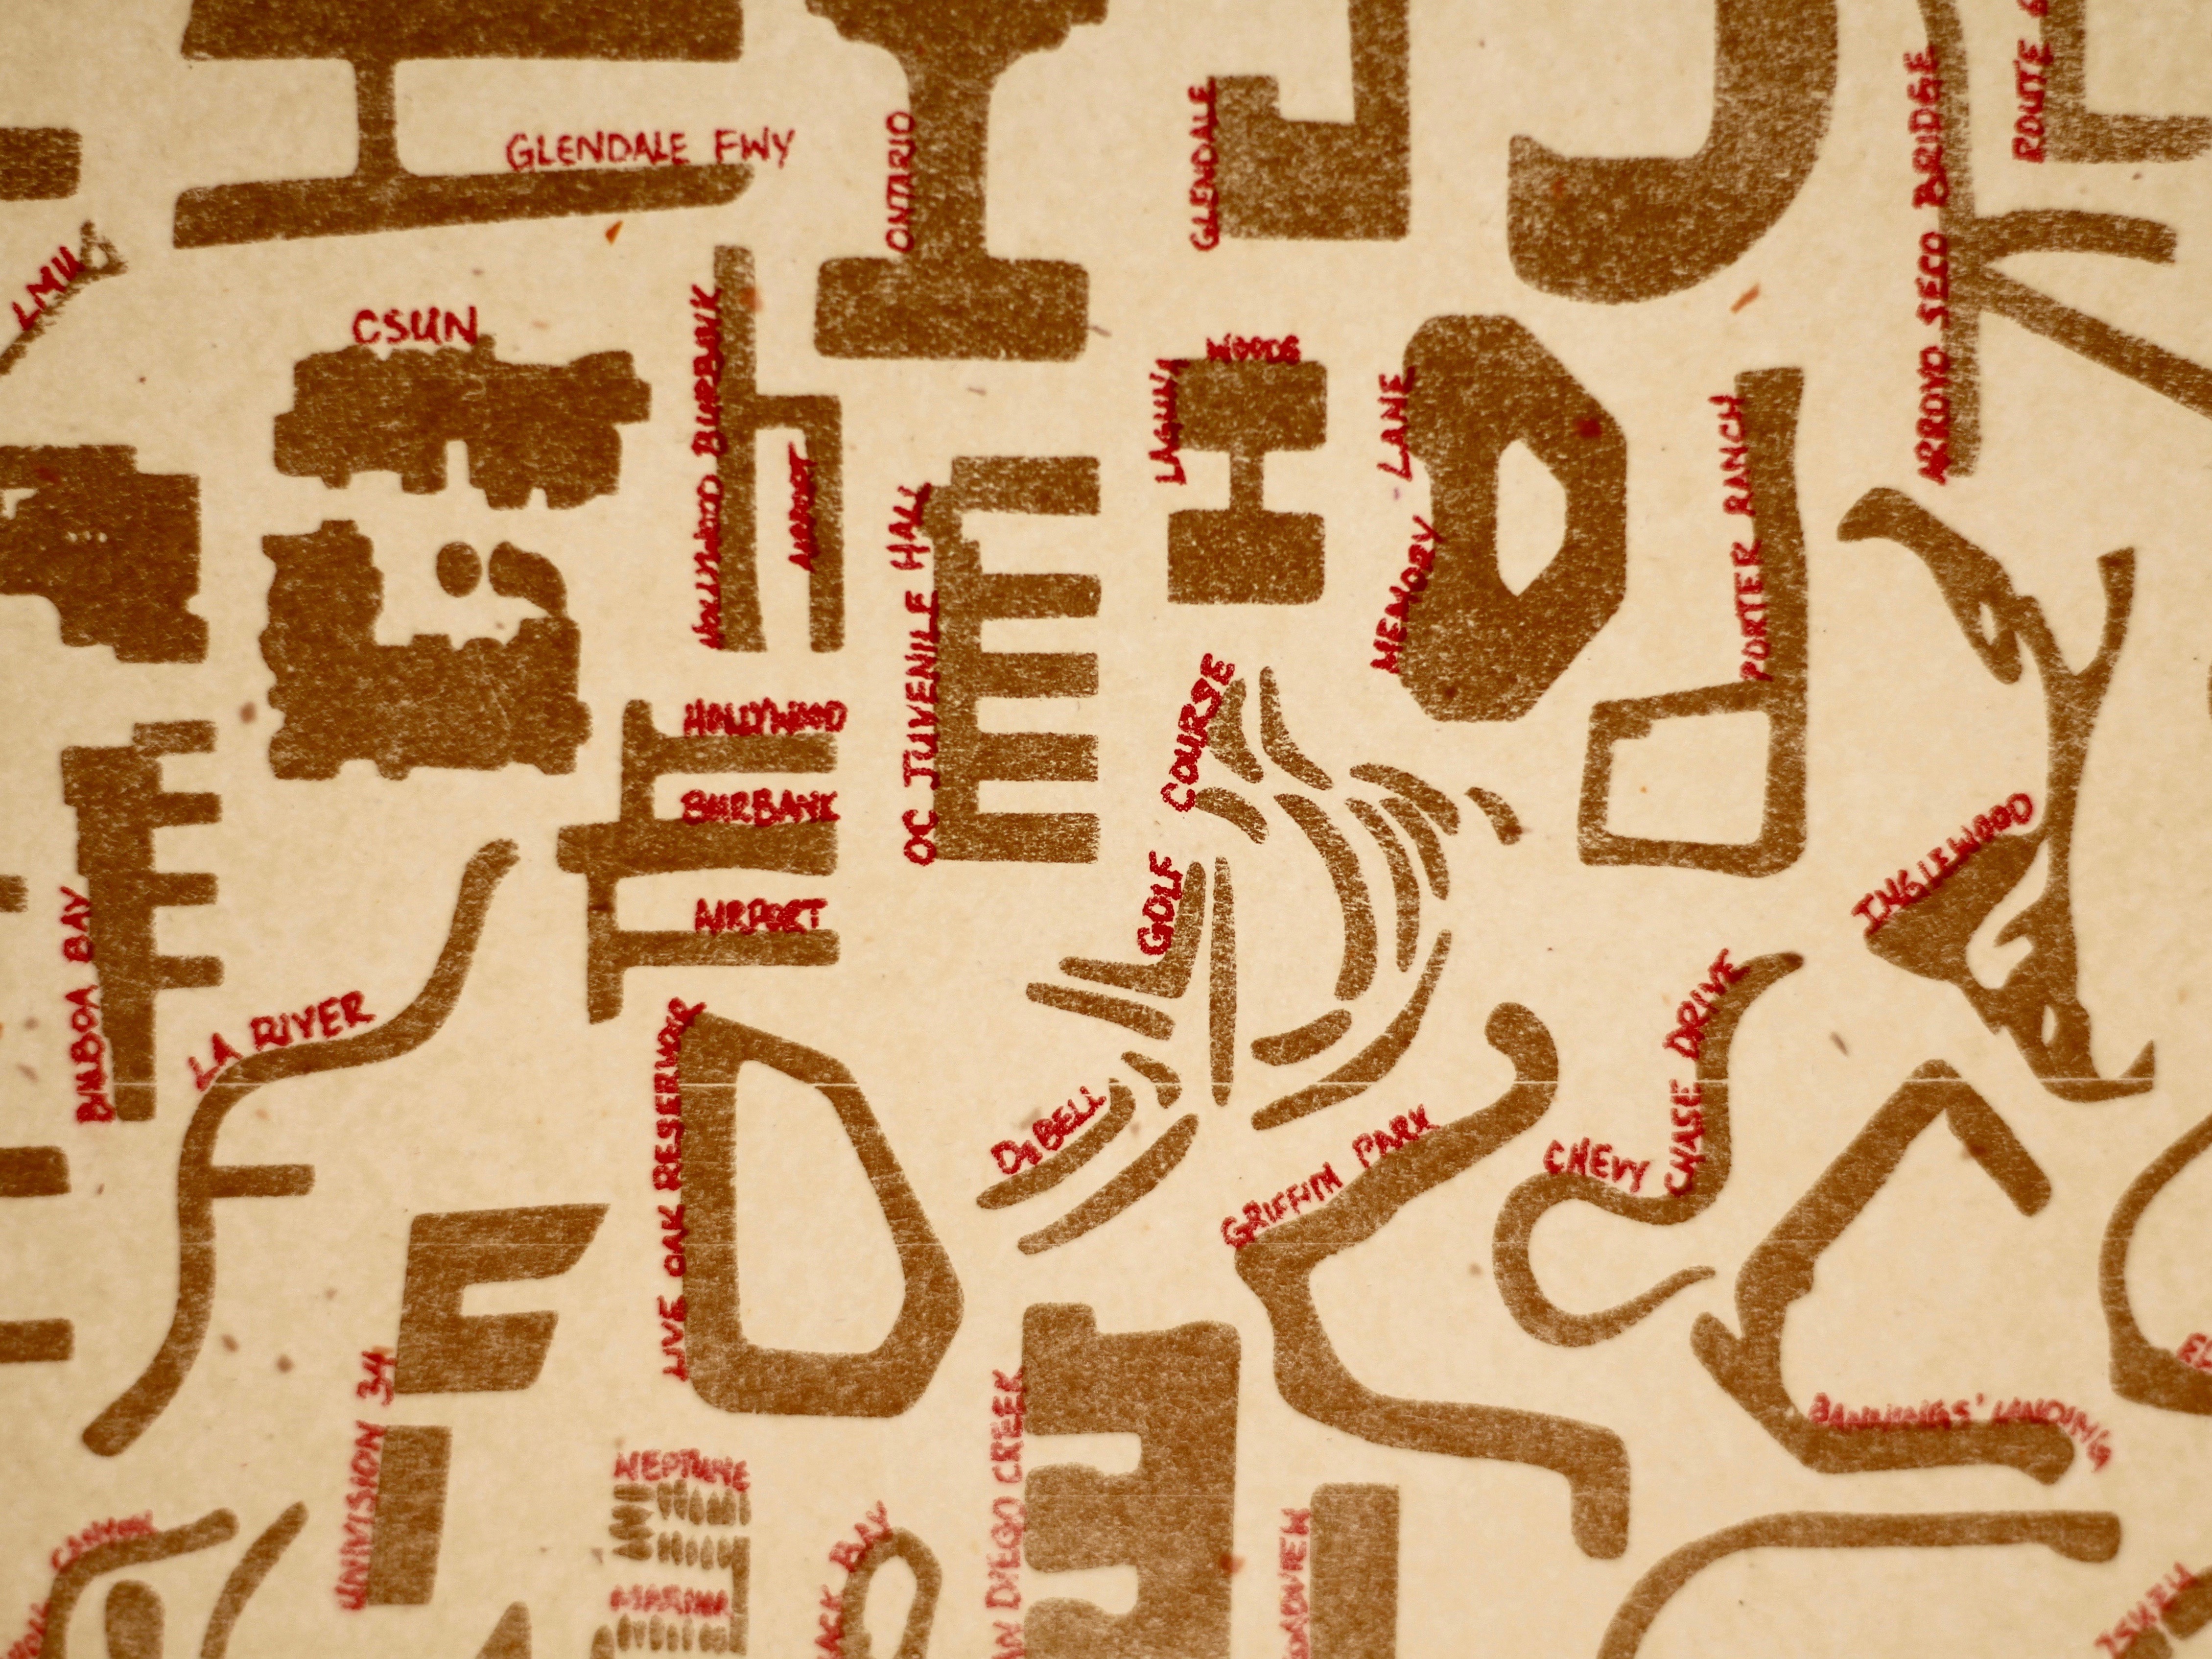 GLENDALE FWY
ONTARIO
GLENDALE
ARROYO SECO BRIDGE
ROUTE
LMU
CSUN
HOLLYWOOD BURBANK
AIRPORT
LAGUNA WOODS
MEMORY LANE
PORTER RANCH
OC JUVENILE HALL
HOLLYWOOD
BURBANK
AIRPORT
GOLF COURSE
DeBELL
INGLEWOOD
BALBOA BAY
LA RIVER
LIVE OAK RESERVOIR
GRIFFITH PARK
CHEVY CHASE DRIVE
UNIVISION 34
BANNINGS' LANDING
NEPTUNE
MARINA
AN DIEGO CREEK
CANYON